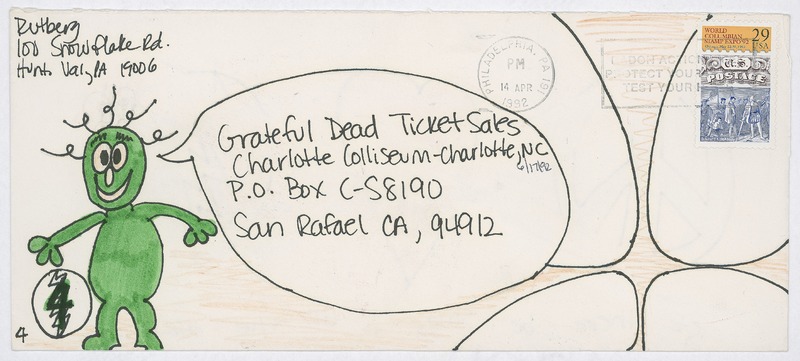 Rutberg
100 Snowflake Rd.
Hunt. Val, PA 19006
PHILADELPHIA, PA 191
PM
14 APR
1992
TEST YOUR
WORLD
COLUMBIAN
STAMP EXPO '92
29
USA
U.S.
POSTAGE
Grateful Dead Ticket Sales
Charlotte Colliseum-Charlotte, NC
6/17/92
P.O. Box C-S8190
San Rafael CA, 94912
4
4